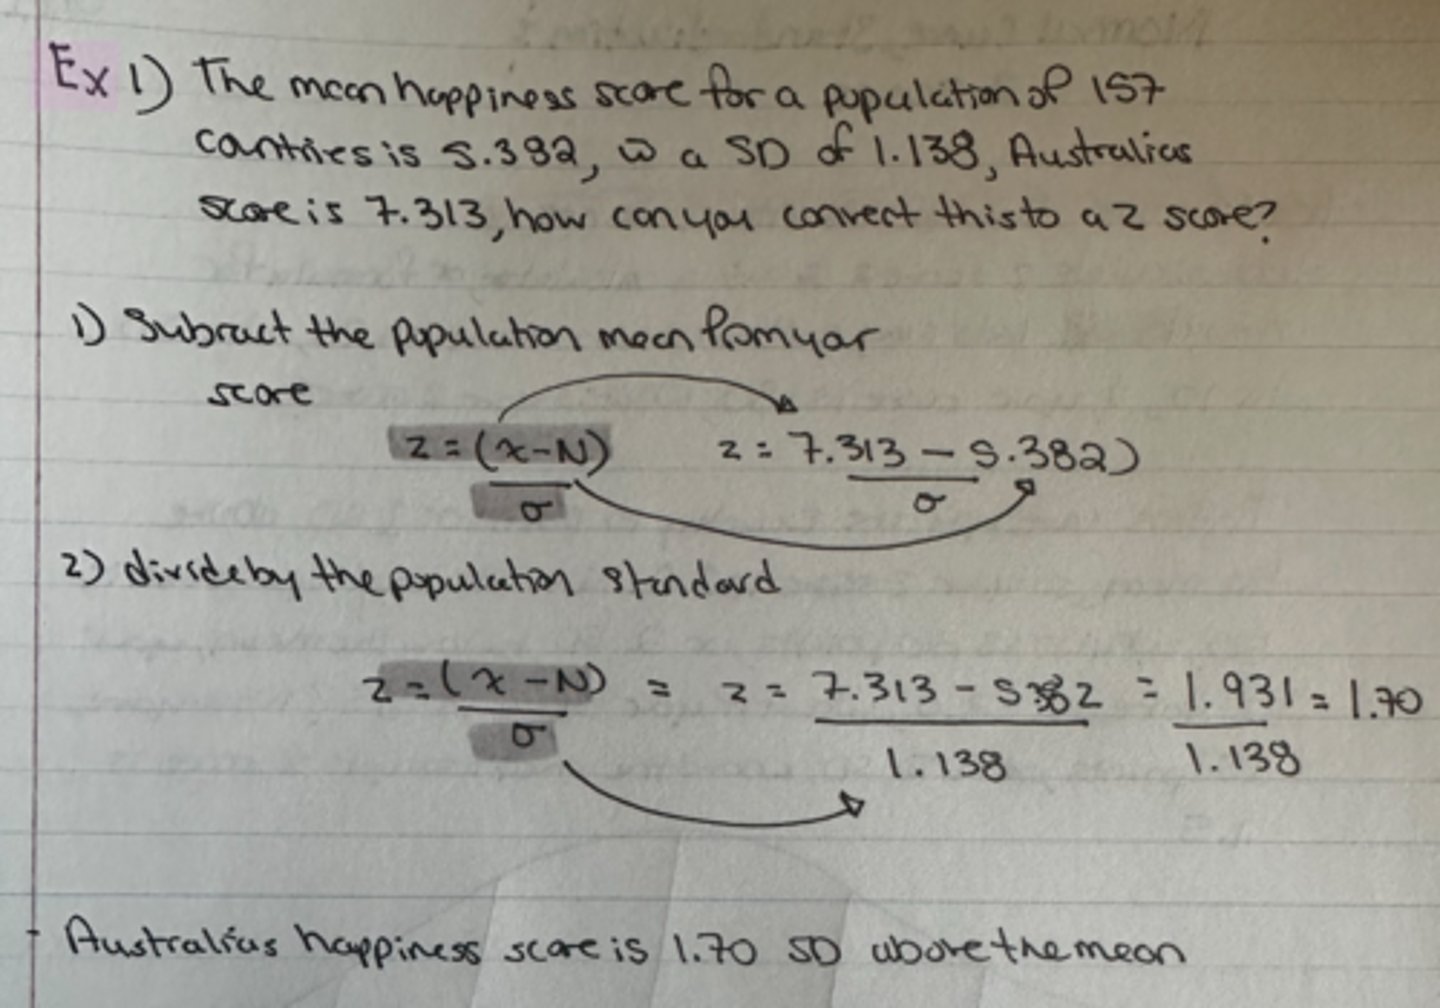 Ex 1) The mean happiness score for a population of 157
countries is 5.382, w a SD of 1.138, Australias
score is 7.313, how can you convert this to a z score?
1) Subract the population mean from your
score
z = (x - N) z = 7.313 - 5.382)
σ σ
2) divide by the population standard
z = (x - N) = z = 7.313 - 5.382 = 1.931 = 1.70
σ 1.138 1.138
- Australias happiness score is 1.70 SD above the mean